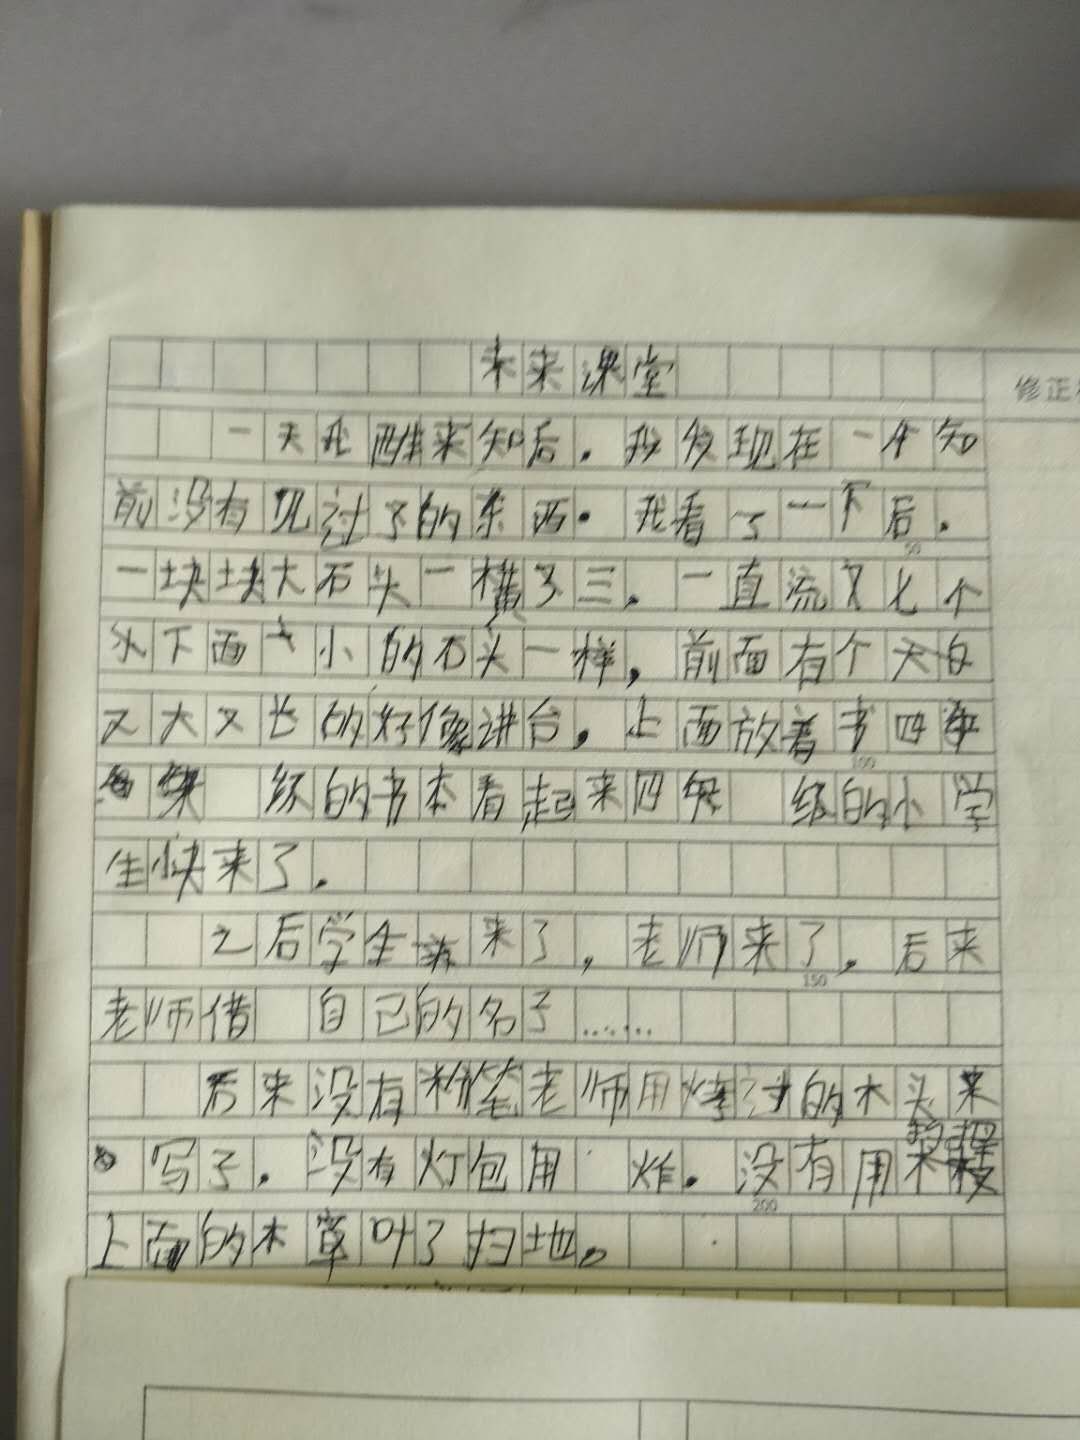 未来课堂
修正
一天我醒来知后.我发现在一个知
前没有见过了的东西.我看了一下后.
一块块大石头一横了三.一直流又七个
头下面大小的石头一样,前面有个天白
又大又长的好像讲台,上面放着书四年
级的书本看起来四年级的小学
生快来了.
之后学生来了,老师来了.后来
老师借自己的名子……
后来没有粉笔老师用烤过的木头来
写子.没有灯包用炸.没有用
上面的木草叶了扫地。
50
100
150
200